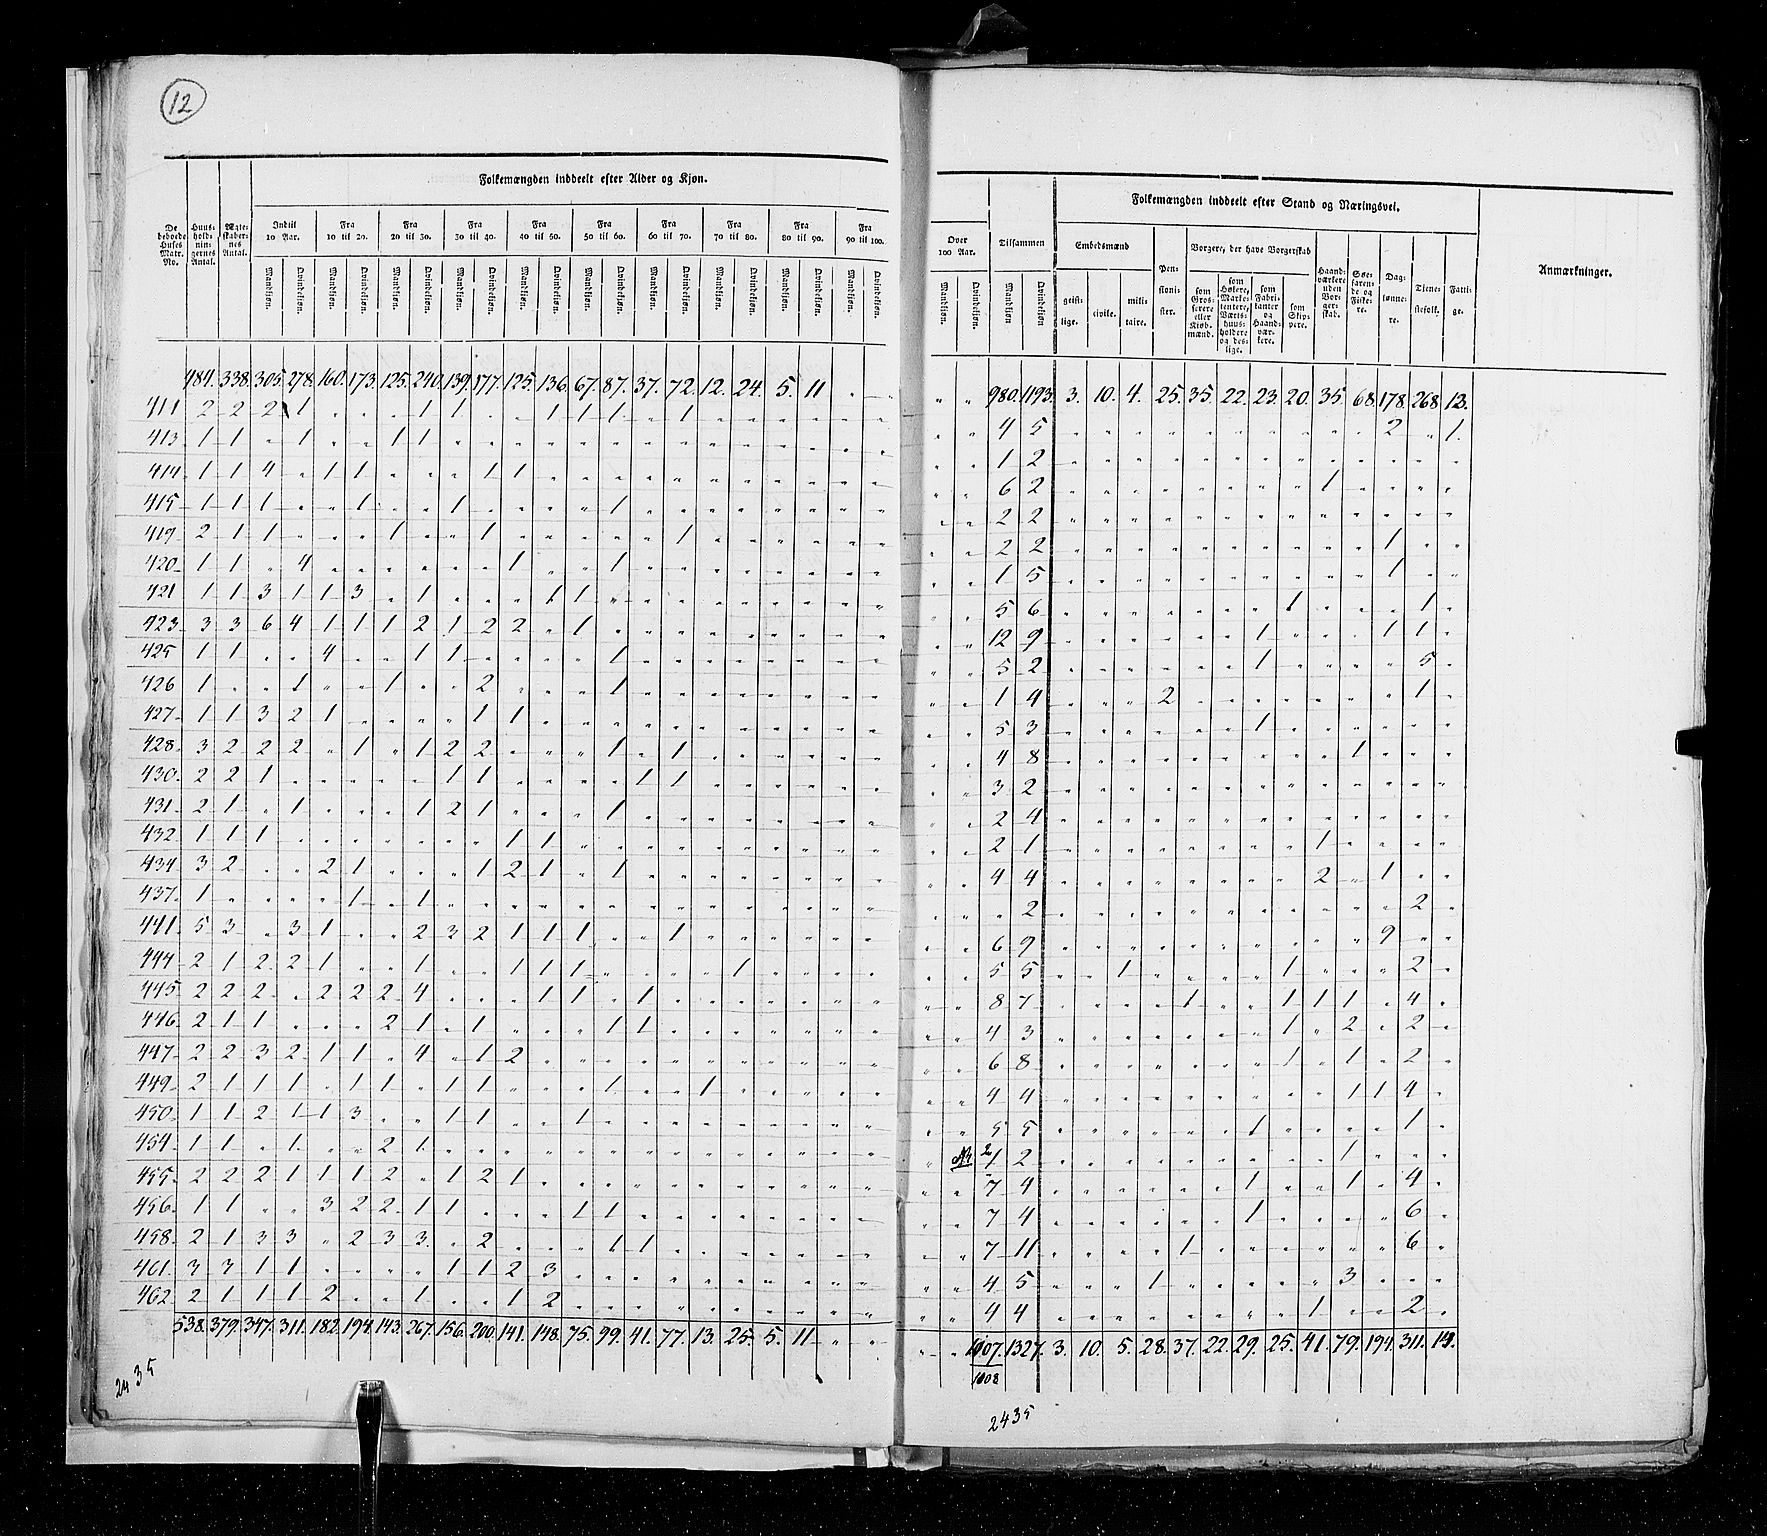 12
Folkemængden inddeelt efter Alder og Kjøn.
De beboede Huses Matr. No.
Huus-hold-nin-gernes Antal.
Ægte-skaber-nes Antal.
Indtil 10 Aar.
Fra 10 til 20.
Fra 20 til 30.
Fra 30 til 40.
Fra 40 til 50.
Fra 50 til 60.
Fra 60 til 70.
Fra 70 til 80.
Fra 80 til 90.
Fra 90 til 100.
Mandkjøn. Qvindekjøn. Mandkjøn. Qvindekjøn. Mandkjøn. Qvindekjøn. Mandkjøn. Qvindekjøn. Mandkjøn. Qvindekjøn. Mandkjøn. Qvindekjøn. Mandkjøn. Qvindekjøn. Mandkjøn. Qvindekjøn. Mandkjøn. Qvindekjøn. Mandkjøn. Qvindekjøn.
484. 338. 305. 278. 160. 173. 125. 240. 139. 177. 125. 136. 67. 87. 37. 72. 12. 24. 5. 11 " "
411 2 2 2 1 " " " 1 1 " " 1 1 1 " 1 " " " " " "
413 1 1 " 1 " " 1 1 " " " " " " " " " " " " " "
414 1 1 4 " 1 1 " " " 1 1 " " " " " " " " " " "
415 1 1 1 " " 1 " " 1 " " " " 1 " " " " " " " "
419 2 1 1 " " " 1 " " 1 " " " " " 1 " " " " " "
420 1 1 " 4 " " " " " " 1 " " 1 " " " " " " " "
421 1 1 3 1 1 3 " 1 " " " 1 1 " " " " " " " " "
423 3 3 6 4 1 1 1 2 1 2 2 " 1 " " " " " " " " "
425 1 1 " " 4 " " 1 1 " " " " 1 " " " " " " " "
426 1 " " 1 " " 1 " " 2 " " " 1 " " " " " " " "
427 1 1 3 2 1 " " " " 1 1 " " " " " " " " " " "
428 3 2 2 2 " 1 " 1 2 2 " " " 1 " 1 " " " " " "
430 2 2 1 " " " " " 1 1 " " " " 1 1 " " " " " "
431 2 1 " 1 " " " 1 2 1 " " " 1 " " " " " " " "
432 1 1 1 " " " " " " " 1 1 " " " " " " " " " "
434 3 2 " " 2 1 " " " 1 2 1 " 1 " " " " " " " "
437 1 " " " " 1 " 1 " " " " " " " " " " " " " "
441 5 3 " 3 1 " " 2 3 2 1 1 1 " " 1 " " " " " "
444 2 1 2 2 1 " " 1 " " 1 1 1 " " " " 1 " " " "
445 2 2 2 " 2 2 2 4 " " " 1 1 " 1 " " " " " " "
446 2 1 1 " " " 2 1 " 1 " " " 1 1 " " " " " " "
447 2 2 3 2 1 1 " 4 " 1 2 " " " " " " " " " " "
449 2 1 1 1 " 1 1 " 1 1 " " " 1 " " 1 " " " " "
450 1 1 2 1 1 3 " " 1 1 " " 1 " " " " " " " " "
454 1 1 " 1 " " 2 1 " " " " " " " " " " " " " "
455 2 2 2 1 1 1 2 " 1 2 1 " " " " " " " " " " "
456 1 1 " " 3 2 2 1 1 " " " 1 1 " " " " " " " "
458 2 1 3 3 " 2 3 3 " 2 " " " 1 1 " " " " " " "
461 3 3 1 1 " " " " 1 1 2 3 " " " " " " " " " "
462 2 1 1 1 2 " " 1 " " 1 2 " " " " " " " " " "
538. 379. 347. 311. 182. 194. 143. 267. 156. 200. 141. 148. 75. 99. 41. 77. 13. 25. 5. 11 " "
2435
Folkemængden inddeelt efter Stand og Næringsvei.
Over 100 Aar.
Tilsammen
Embedsmænd
Pen-sioni-ster.
Borgere, der have Borgerskab
Haand-værkere uden Bor-ger-skab.
Søe-farende og Fiske-re.
Dag-lønne-re.
Tjene-stefolk.
Fatti-ge.
Anmærkninger.
Mandkjøn. Qvindekjøn. Mandkjøn Qvindekjøn
geist-lige.
civile.
mili-taire.
som Gros-serere eller Kjøb-mænd.
som Høkere, Marke-tentere, Værts-huus-holdere og des-lige.
som Fabri-kanter og Haand-vær-kere.
som Skip-pere.
" " 980. 1193. 3. 10. 4. 25. 35. 22. 23. 20. 35. 68. 178. 268. 13.
" " 4 5 " " " " " " " " " " 2 " 1.
" " 1 2 " " " " " " " " " " " " "
" " 6 2 " " " " " " " " 1 " " " "
" " 2 2 " " " " " " " " " " " " "
" " 2 2 " " " " " " " " " " 1 " "
" " 1 5 " " " " " " " " " " 1 " "
" " 5 6 " " " " " " " 1 " " " 1 "
" " 12 9 " " " " " " 1 " " " 1 1 "
" " 5 2 " " " " " " 1 " " " " 5 "
" " 1 4 " " " 2 " " " " " " " 1 "
" " 5 3 " " " " " " 1 " " " " " "
" " 4 8 " " " " " " " " " 1 " " "
" " 3 2 " " " " " " " " " " " " "
" " 2 4 " " " " " " " " " " " " "
" " 2 1 " " " " " " " " 1 " " " "
" " 4 4 " " " " " " " " 2 " 1 " "
" " " 2 " " " " " " " " " " " 2 "
" " 6 9 " " " " " " " " " " 9 " "
" " 5 5 " " 1 " " " " 1 " " " 2 "
" " 8 7 " " " " 1 " " 1 1 1 " 4 "
" " 4 3 " " " " " " " 1 " 2 " 2 "
" " 6 8 " " " " " " " 1 " 1 " 2 "
" " 4 4 " " " " " " " " " 1 1 4 "
" " 5 5 " " " " " " 1 " " " " 1 "
" 2 1 2 " " " " " " " " " 1 " " "
" " 7 4 " " " " " " 1 " " 1 " 4 "
" " 7 4 " " " " " " 1 " " " " 6 "
" " 7 11 " " " " 1 " " " " " " 6 "
" " 4 5 " " " 1 " " " " " 3 " " "
" " 4 4 " " " " " " " " 1 " " 2 "
" " 1107. 1327. 3. 10. 5. 28. 37. 22. 29. 25. 41. 79. 194. 311. 14.
1108
2435